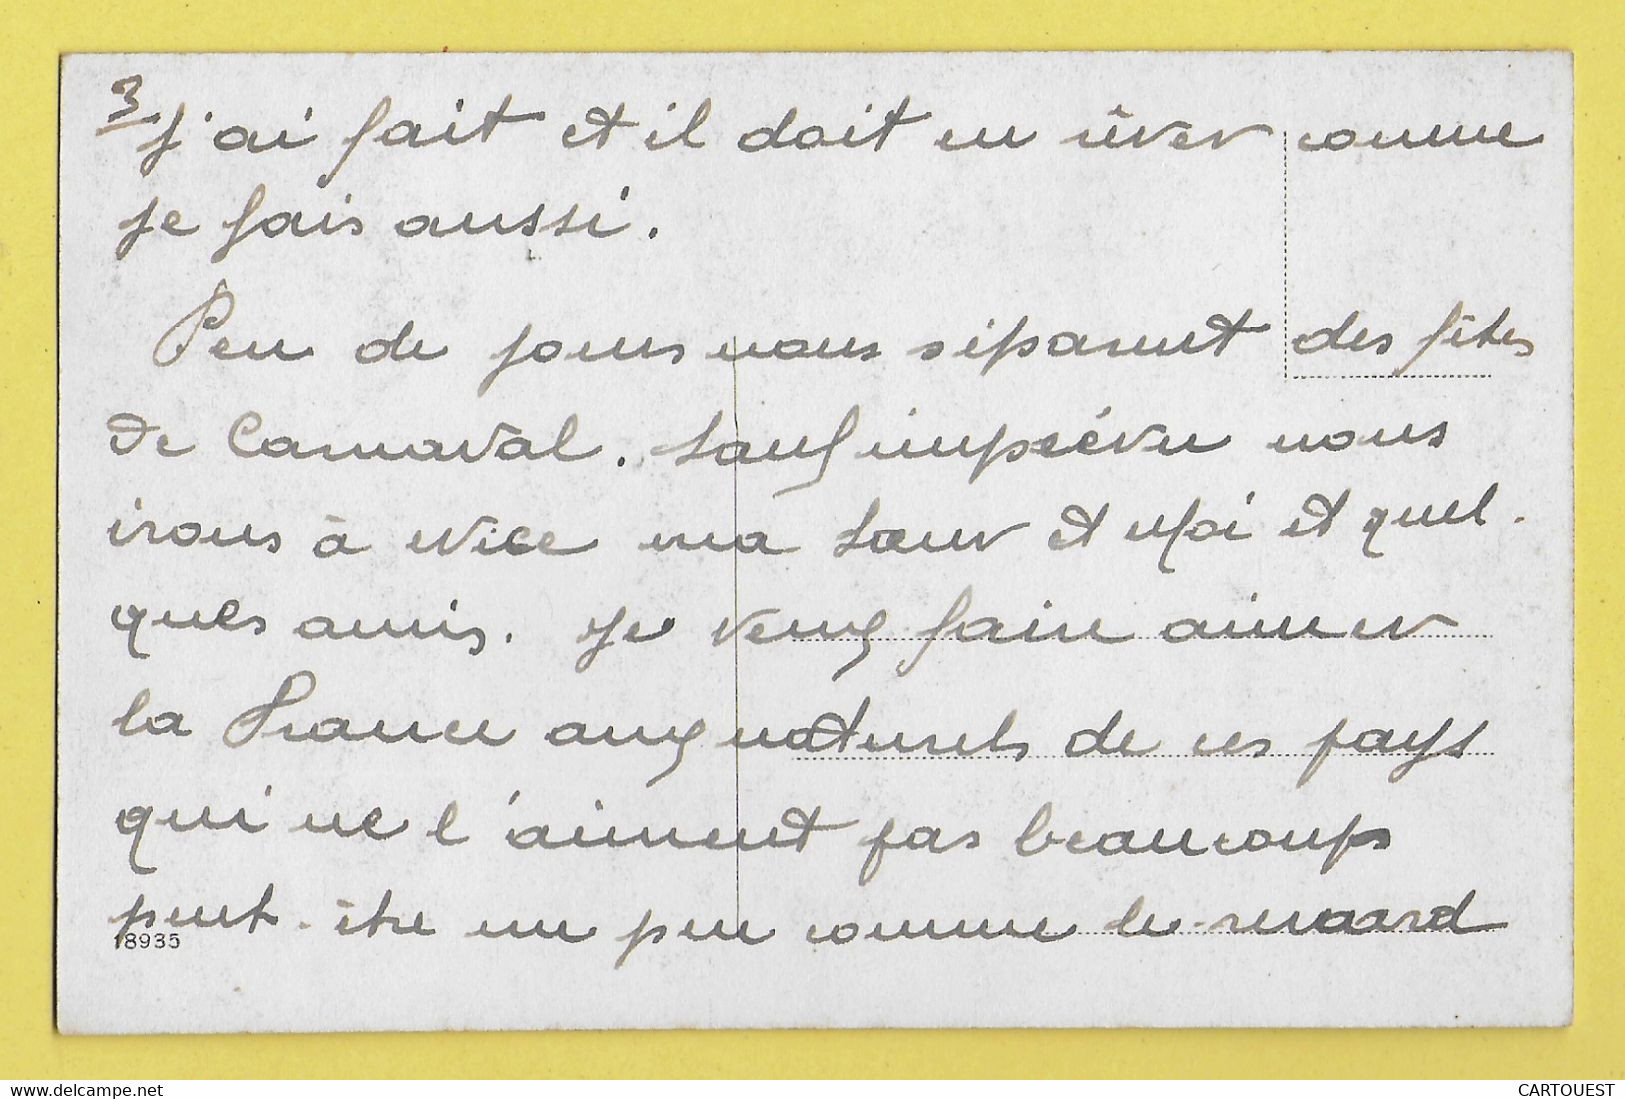 3
j'ai fait et il doit en rêver comme
je fais aussi.
Peu de jours nous séparent des fêtes
de Carnaval. Sauf imprévu nous
irons à Nice ma Sœur et Moi et quel-
ques amis. Je veux faire aimer
la France aux naturels de ces pays
qui ne l'aiment pas beaucoup
peut-être un peu comme le renard
18935
delcampe.net
CARTOUEST